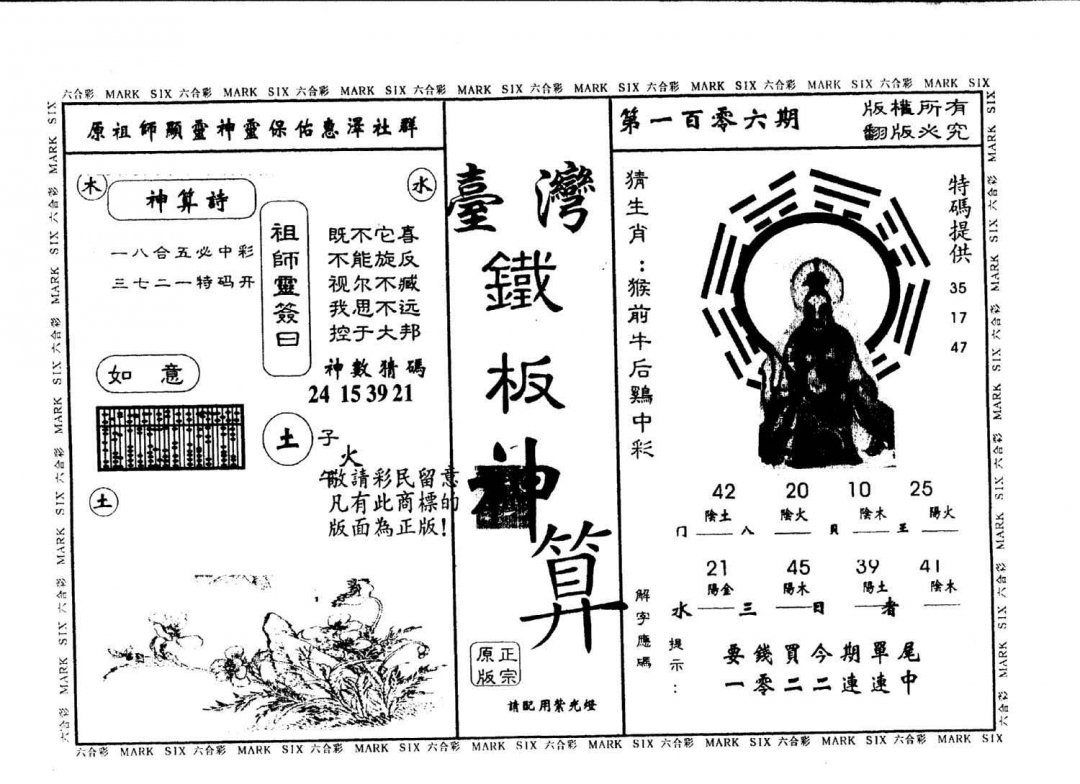 六合彩 MARK SIX 六合彩 MARK SIX 六合彩 MARK SIX 六合彩 MARK SIX 六合彩 MARK SIX 六合彩 MARK SIX 六合彩 MARK SIX 六合彩 MARK SIX
原祖師顯靈神靈保佑惠澤社群
木
水
神算詩
一八合五必中彩
三七二一特码开
祖師靈簽曰
既不它喜
不能旋反
视尔不臧
我思不远
控于大邦
神數猜碼
24 15 39 21
如意
土
子
火
午
土
敬請彩民留意
凡有此商標的
版面為正版!
臺灣
鐵
板
神
算
正宗
原版
请配用紫光燈
第一百零六期
版權所有
翻版必究
猜生肖:猴前牛后鷄中彩
特碼提供
35
17
47
42 20 10 25
陰土 陰火 陰木 陽火
门 八 貝 王
21 45 39 41
陽金 陽木 陽土 陰木
水 三 日 者
解字應碼
提示:
要錢買今期單尾
一零二二連連中
六合彩 MARK SIX 六合彩 MARK SIX 六合彩 MARK SIX 六合彩 MARK SIX 六合彩 MARK SIX 六合彩 MARK SIX 六合彩 MARK SIX 六合彩 MARK SIX